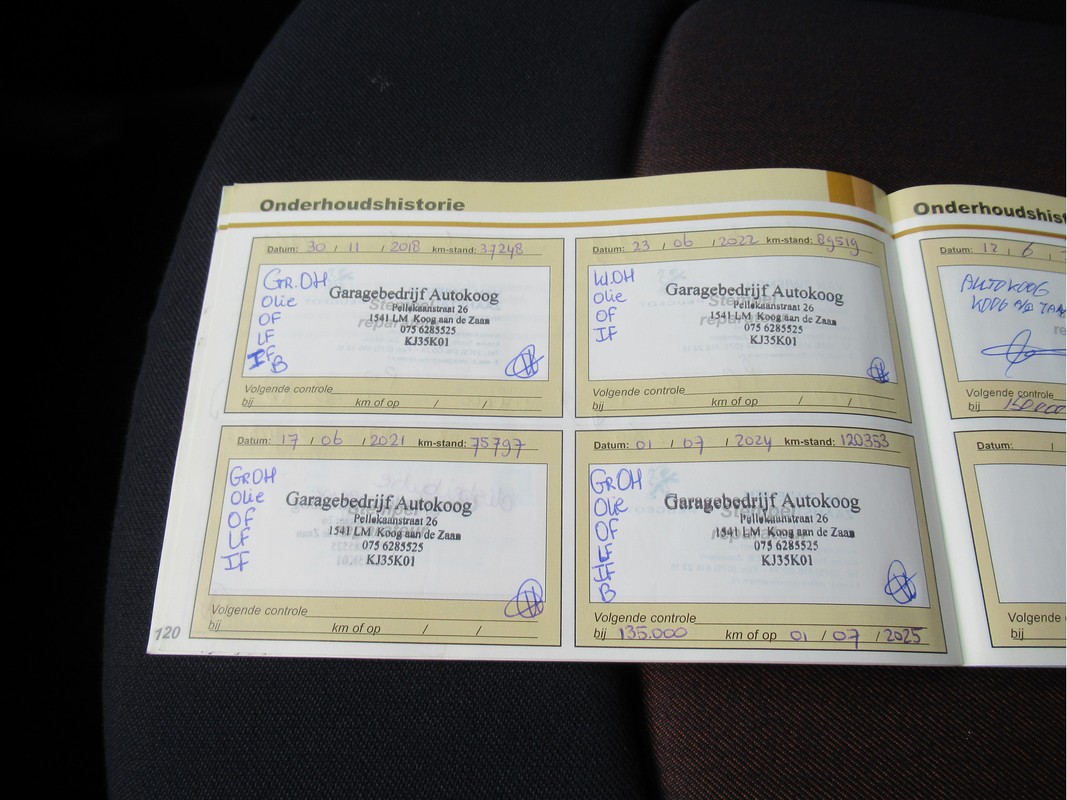 Onderhoudshistorie
Datum: 30 / 11 / 2018 km-stand: 37248
Gr.OH
Olie
OF
LF
IF
B
Garagebedrijf Autokoog
Pellekaanstraat 26
1541 LM Koog aan de Zaan
075 6285525
KJ35K01
Volgende controle
bij km of op / /
Datum: 17 / 06 / 2021 km-stand: 75797
GrOH
Olie
OF
LF
IF
Garagebedrijf Autokoog
Pellekaanstraat 26
1541 LM Koog aan de Zaan
075 6285525
KJ35K01
Volgende controle
bij km of op / /
120
Datum: 23 / 06 / 2022 km-stand: 89519
Kl.OH
Olie
OF
IF
Garagebedrijf Autokoog
Stempel
Pellekaanstraat 26
1541 LM Koog aan de Zaan
075 6285525
KJ35K01
Volgende controle
bij km of op / /
Datum: 01 / 07 / 2024 km-stand: 120353
GrOH
Olie
OF
LF
IF
B
Garagebedrijf Autokoog
Stempel
Pellekaanstraat 26
1541 LM Koog aan de Zaan
075 6285525
KJ35K01
Volgende controle
bij 135.000 km of op 01 / 07 / 2025
Onderhoudshist
Datum: 12 / 6 /
AUTOKOOG
KOOG A/D ZAAN
Volgende controle
bij 150.000
Datum: /
Volgende
bij